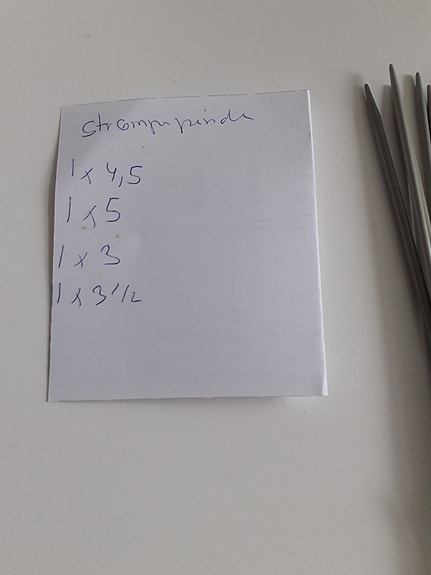 Strømpepinde
1 x 4,5
1 x 5
1 x 3
1 x 3 1/2